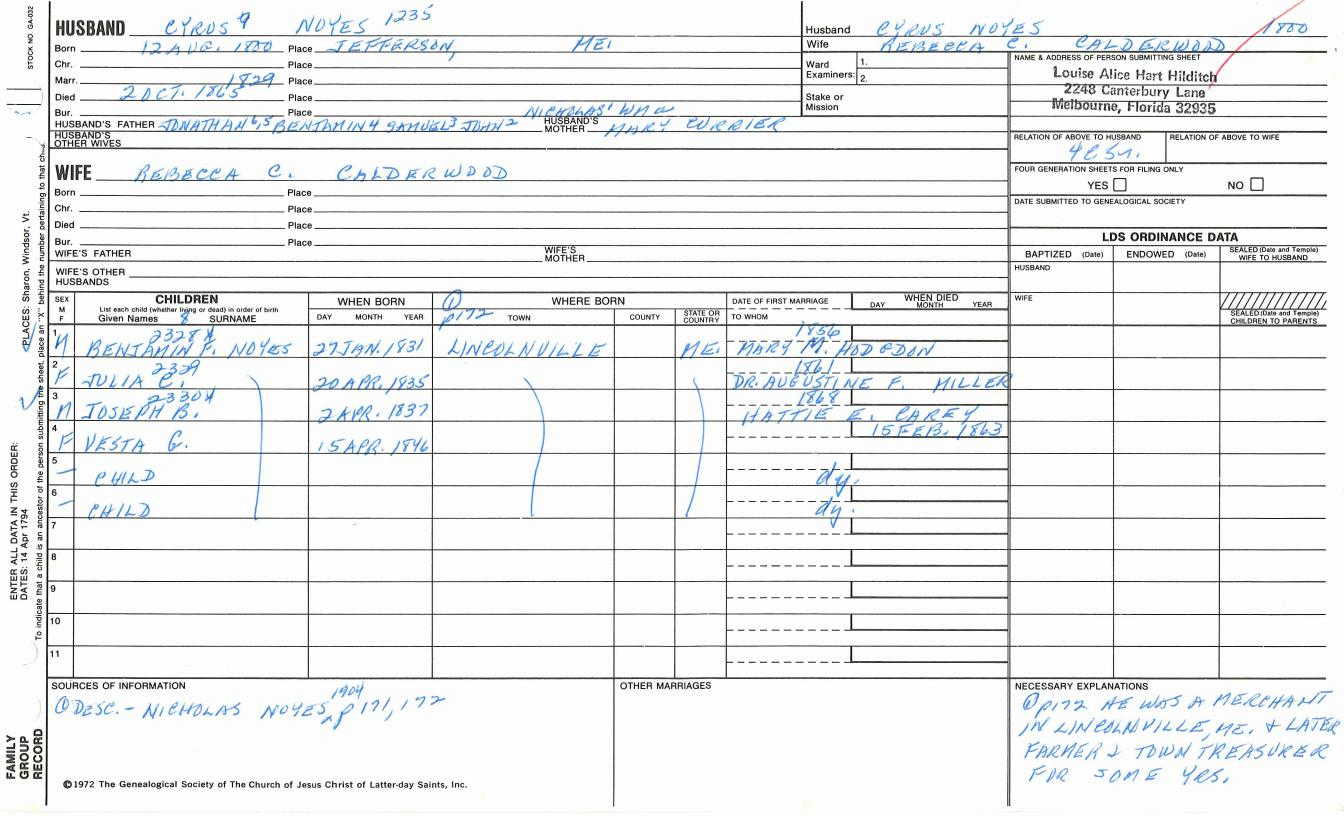 STOCK NO. GA-032
HUSBAND CYRUS 9 NOYES 1235
Born 12 AUG. 1800 Place JEFFERSON, ME.
Chr. Place
Marr. 1829 Place
Died 2 OCT. 1865 Place
Bur. Place
HUSBAND'S FATHER JONATHAN 6,5 BENJAMIN 4 SAMUEL 3 JOHN 2 NICHOLAS' WM
HUSBAND'S MOTHER MARY CURRIER
HUSBAND'S OTHER WIVES
Husband CYRUS NOYES 1800
Wife REBECCA C. CALDERWOOD
Ward Examiners: 1.
2.
Stake or Mission
NAME & ADDRESS OF PERSON SUBMITTING SHEET
Louise Alice Hart Hilditch
2248 Canterbury Lane
Melbourne, Florida 32935
RELATION OF ABOVE TO HUSBAND RELATION OF ABOVE TO WIFE
FOUR GENERATION SHEETS FOR FILING ONLY
YES NO
DATE SUBMITTED TO GENEALOGICAL SOCIETY
WIFE REBECCA C. CALDERWOOD
Born Place
Chr. Place
Died Place
Bur. Place
WIFE'S FATHER WIFE'S MOTHER
WIFE'S OTHER HUSBANDS
LDS ORDINANCE DATA
BAPTIZED (Date) ENDOWED (Date) SEALED (Date and Temple) WIFE TO HUSBAND
HUSBAND
WIFE
SEALED (Date and Temple) CHILDREN TO PARENTS
SEX M F
CHILDREN
List each child (whether living or dead) in order of birth
Given Names 8 SURNAME
WHEN BORN
DAY MONTH YEAR
① p172
WHERE BORN
TOWN COUNTY STATE OR COUNTRY
DATE OF FIRST MARRIAGE
TO WHOM
WHEN DIED
DAY MONTH YEAR
1 2328 X 1856
M BENJAMIN F. NOYES 27 JAN. 1831 LINCOLNVILLE ME. MARY M. HODGDON
2 2329 1861
F JULIA C. 20 APR. 1835 DR. AUGUSTINE F. MILLER
3 2330 X 1868
M JOSEPH B. 2 APR. 1837 HATTIE E. CAREY
4 15 FEB. 1863
F VESTA G. 15 APR. 1846
5
— CHILD dy.
6
— CHILD dy.
7
8
9
10
11
SOURCES OF INFORMATION
① DESC. - NICHOLAS NOYES, 1904 p171, 172
OTHER MARRIAGES
NECESSARY EXPLANATIONS
① p172 HE WAS A MERCHANT
IN LINCOLNVILLE, ME. & LATER
FARMER & TOWN TREASURER
FOR SOME YRS.
©1972 The Genealogical Society of The Church of Jesus Christ of Latter-day Saints, Inc.
FAMILY GROUP RECORD
ENTER ALL DATA IN THIS ORDER:
DATES: 14 Apr 1794
PLACES: Sharon, Windsor, Vt.
To indicate that a child is an ancestor of the person submitting the sheet, place an "X" behind the number pertaining to that